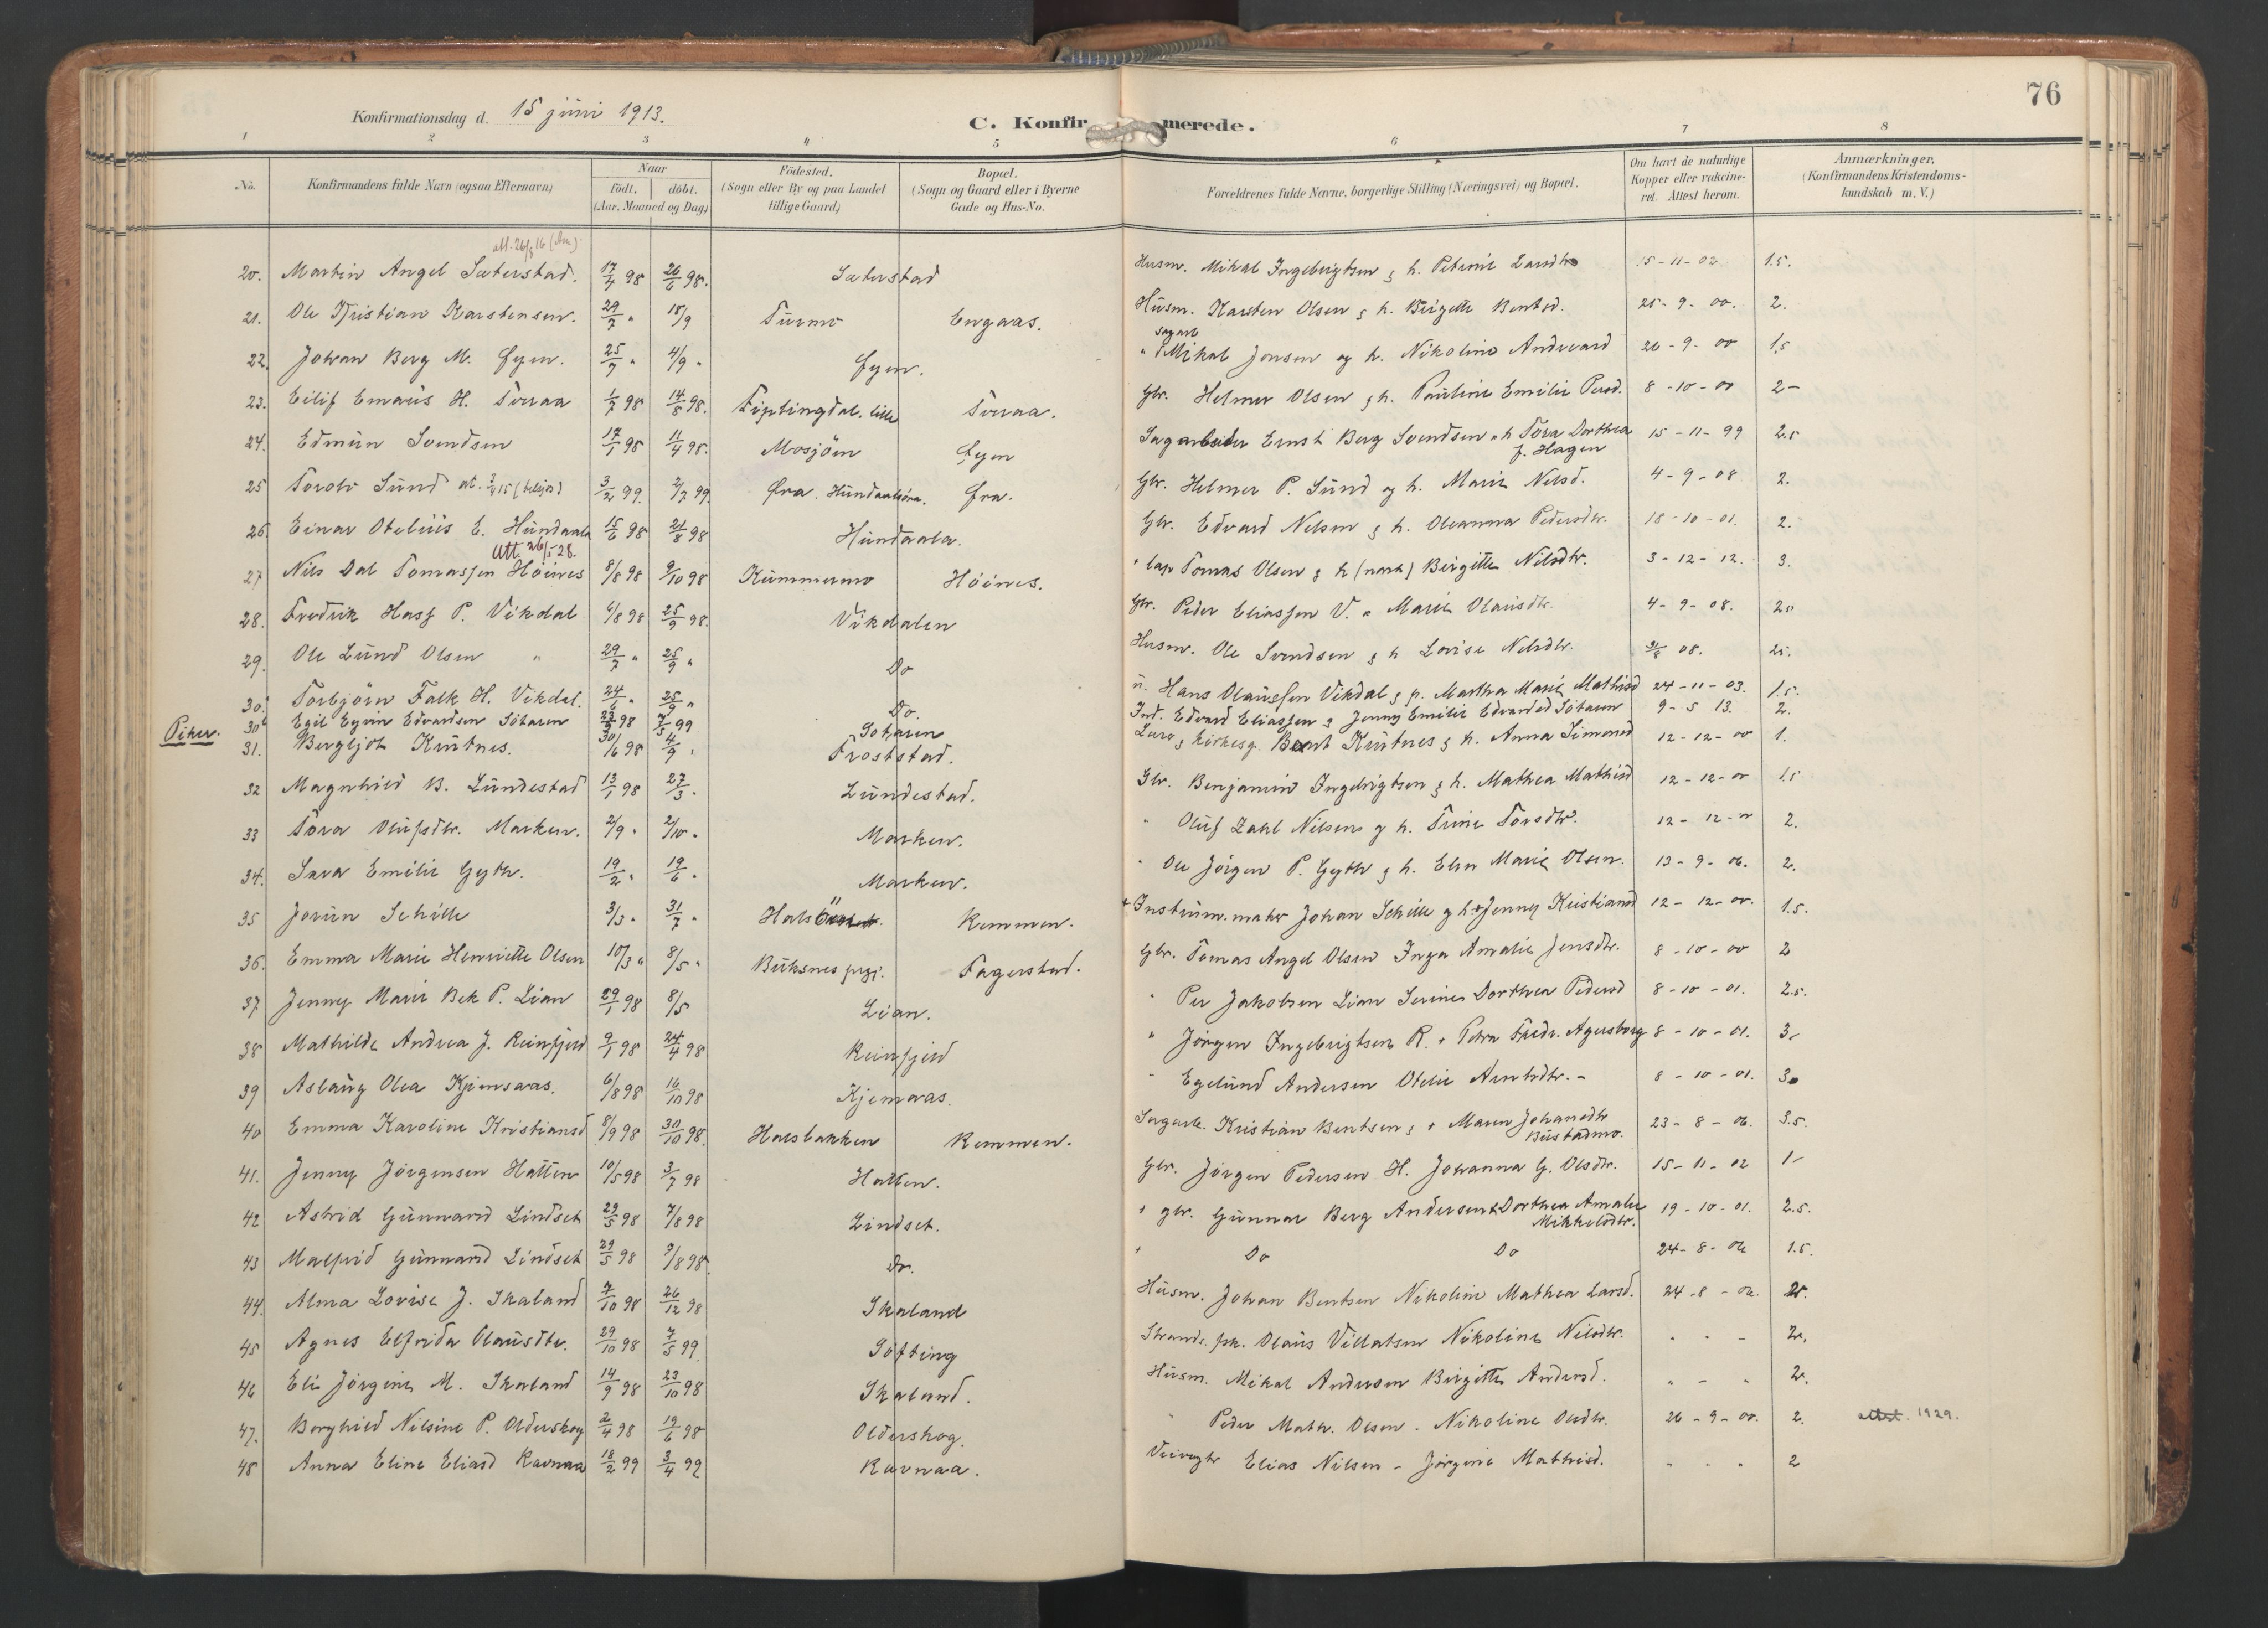 76
Konfirmationsdag d. 15 juni 1913.
C. Konfirmerede.
1 2 3 4 5 6 7 8
No. Konfirmandens fulde Navn (ogsaa Efternavn) Naar født. døbt. (Aar, Maaned og Dag) Fødested. (Sogn eller By og paa Landet tillige Gaard) Bopæl. (Sogn og Gaard eller i Byerne Gade og Hus-No. Forældrenes fulde Navne, borgerlige Stilling (Næringsvei) og Bopæl. Om havt de naturlige Kopper eller vakcineret. Attest herom. Anmærkninger, (Konfirmandens Kristendomskundskab m. V.)
20. Martin Angel Sæterstad. 17/4 98 26/6 98. Sæterstad Husm. Mikal Ingebrigtsen & h. Petrine Larsdtr 15-11-02 1.5.
21. Ole Kristian Karstensen. 29/7 " 18/9 Turmo Engaas. Husm. Karsten Olsen & h. Birgitte Bentsd. 25-9-00. 2.
22. Johan Berg M. Øyen. 25/7 " 4/9 " Øyen. " Sagarb Mikal Jensen og h. Nikolina 26-9-00 1.5
23. Eilif Emaus H. Toraa 1/7 98 14/8 98. Fiplingdal. lille Toraa. Gbr. Helmer Olsen & h. Pauline Emilie Persd. 8-10-00 2-
24. Edmun Svendsen 17/1 98 11/4 98. Mosjøen Øyen Sagarbeider Ernst Berg Svendsen " h Tora Dorthea f. Hagen 15-11-99 2.5
25 Torolv Lund 3/2 99. 2/7 99 Øra. Øra. Gbr. Helmer P. Lund og h. Marie Nilsd. 4-9-08 2.
26. Einar Otelius E. Hundaala 15/6 98 21/8 98 Hundaala. Gbr. Edvard Nelsen & h. Oleanna Pedersdtr. 18-10-01. 2.
Att. 26/5 28.
27 Nils Dal Tomassen Høines 8/8 98 9/10 98 Kummermo Høines. + lap Tomas Olsen & h (nork) Birgitte Nilsdtr. 3-12-12. 3.
28. Fredrik Hass P. Vikdal 6/8 98 25/9 98. Vikdalen Gbr. Peder Eliassen V. " Marie Olausdtr. 4-9-08.
29. Ole Lund Olsen " 29/7 " 25/9 " Do Husm. Ole Svendsen & h Lovise Nelsdtr. 08.
30. Torbjørn Falk H. Vikdal. 24/6 " 25/9 " Do. Hans Olaussen Vikdal & h. Martha Marie Mathisd 24-11-03. 1.5.
30b Egil Eyvin Edvardsen 98 99 Ind. Edvard Eliassen & Jenny Emilie 9-5 13. 2.
Piker.
31. Bergljot Krutnes. 30/6 98 4/9 " Froststad. Lærer & kirkesg. Bernt Krutnes & h. Anna Simonsd 12-12-00 1.
32 Magnhild B. Lundestad 13/1 98 27/3. Lundestad. Gbr. Benjamin Ingebrigtsen & h. Mathea Mathisd 12-12-00 1.5
33 Tora Olufsdtr. Marken. 2/9 " 2/10 " Marken. " Oluf Zahl Nilsen g h. Trine Torsdtr. 12-12-00 2.
34. Sara Emilie Gyth. 19/2 " 19/6 " Marken. " Ole Jörgen P. Gyth & h. Elen Marie Olsen. 13-9-06. 2.
35 Jorun Schille 3/3 " 31/7 " Kemmen. + Instrum.maker Johan Schille g h + Jenny Kristiansd 12-12-00. 1.5.
36. Emma Marie Henriette Olsen 10/3 " 8/5 " Buksnes prgj. Fagerstad. Gbr. Tomas Angel Olsen Inga Amalie Jensdtr. 8-10-00 2
37 Jenny Marie Bek P. Lian 29/1 98 8/5 Lian. " Per Jakobsen Lian Serine Dorthea Pedersd 8-10-01. 2.5.
38 Mathilde Andrea J. Reinfjeld 9/1 98 24/4 98 Reinfjeld " Jörgen Ingebrigtsen R. + Petra Fredr. Agersborg 8-10-01. 3-
39 Aslaug Olea Kjemsaas. 6/8 98 16/10 98 Kjemsaas. " Egelund Andersen Otelie Arntsdtr. - 8-10-01. 3
40 Emma Karoline Kristiansd 8/9 98 30/10 98. Halsbakken Kemmen. Sagarb. Kristian Bentsen & + Maren Johansdtr Bustadmo. 23-8-06. 3.5.
41. Jenny Jørgensen Hatten 10/5 98 3/7 98 Hatten. Gbr. Jørgen Pedersen H. Johanna G. Olsdtr. 15-11-02 1-
42 Astrid Gunnarsd Lindset 29/5 98 7/8 98 Lindset. + gbr. Gunnar Berg Andersen & Dorthea Amalie Mikkelsdtr. 19-10-01. 2.5.
43 Malfrid Gunnarsd Lindset 29/5 98 7/8 98. Do. + Do Do 24-8-06 1.5.
44. Alma Lovise J. Skaland 7/10 98 26/12 98 Skaland Husm. Johan Bentsen Nikoline Mathea Larsd. 24-8-06. 2.
45 Agnes Elfrida Olausdtr. 29/10 98 7/5 99. Søfting Strands. pk. Olaus Villatsen Nikoline Nilsdtr. " " - 2.
46 Eli Jørgine M. Skaland 14/9 98 23/10 98 Skaland. Husm. Mikal Andersen Birgitte Andersd. " - " 2.
47. Borghild Nilsine P. Olderskog 2/4 98 19/6 98 Olderskog. " Peder Math. Olsen - Nikoline Olsdtr. 26-9-00. 2. attest. 1929.
48 Anna Eline Eliasd Ravnaa 18/2 99 3/4 99 Ravnaa. Veivogter Elias Nilsen - Jørgine Mathisd. " " " 2